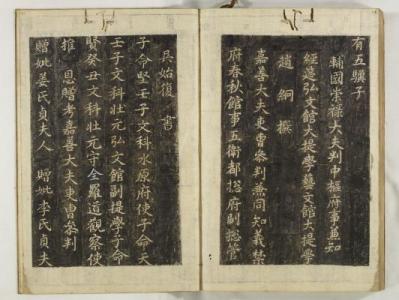 有五驥子
輔國崇祿大夫判中樞府事兼知
經筵弘文館大提學藝文館大提學
趙絅撰
嘉善大夫吏曹參判兼同知義禁
府春秋館事五衛都摠府副摠管
吳始復 書
子命堅壬子文科水原府使子命天
壬子文科壯元弘文館副提學子命
賢癸丑文科壯元守全羅道觀察使
推 恩贈考嘉善大夫吏曹參判
贈妣姜氏貞夫人 贈妣李氏貞夫